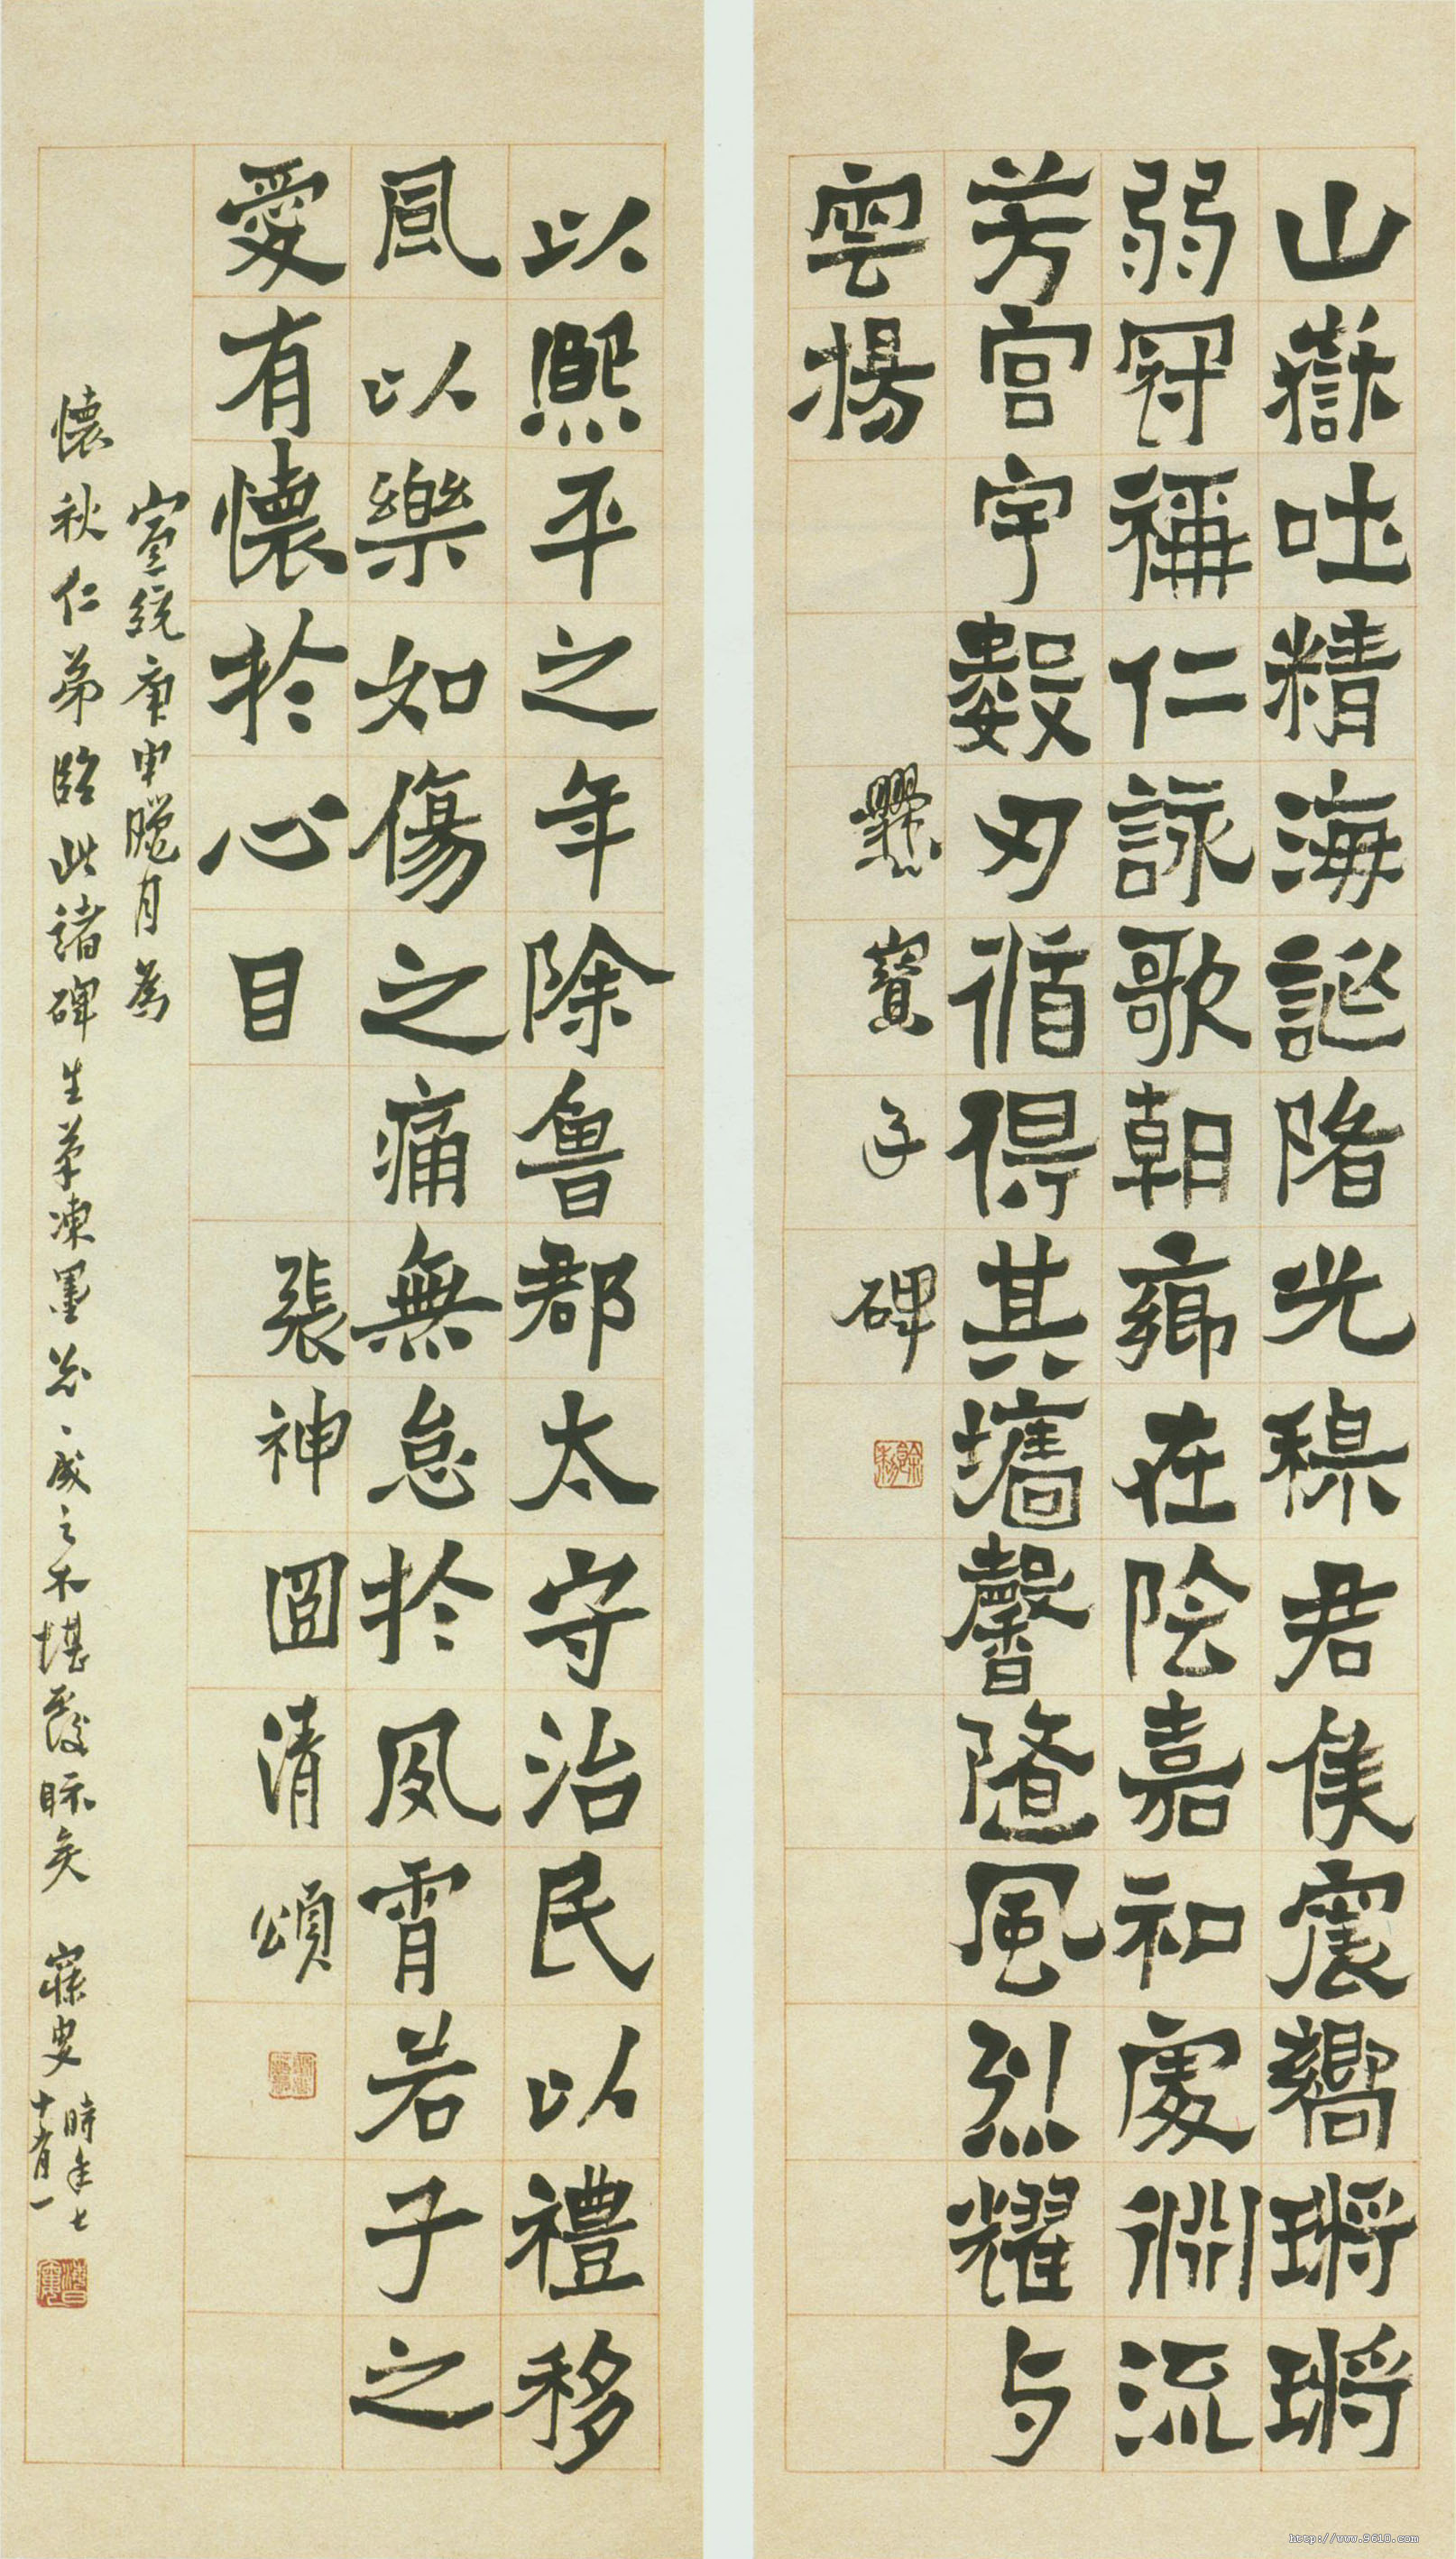 山嶽吐精海誕陏光穆君侯震嚮鏘鏘
弱冠稱仁詠歌朝鄉在陰嘉和處淵流
芳宮宇數刃循得其墻馨隨風烈耀与
雲揚
爨寶子碑
以熙平之年除魯郡太守治民以禮移
風以樂如傷之痛無怠於夙霄若子之
愛有懷於心目
張神冏清頌
宣統庚申臘月為
懷秋仁弟臨此諸碑生筆凍墨怱〻成之不堪覆眎矣 寐叟
時年七
十有一
http://www.9610.com